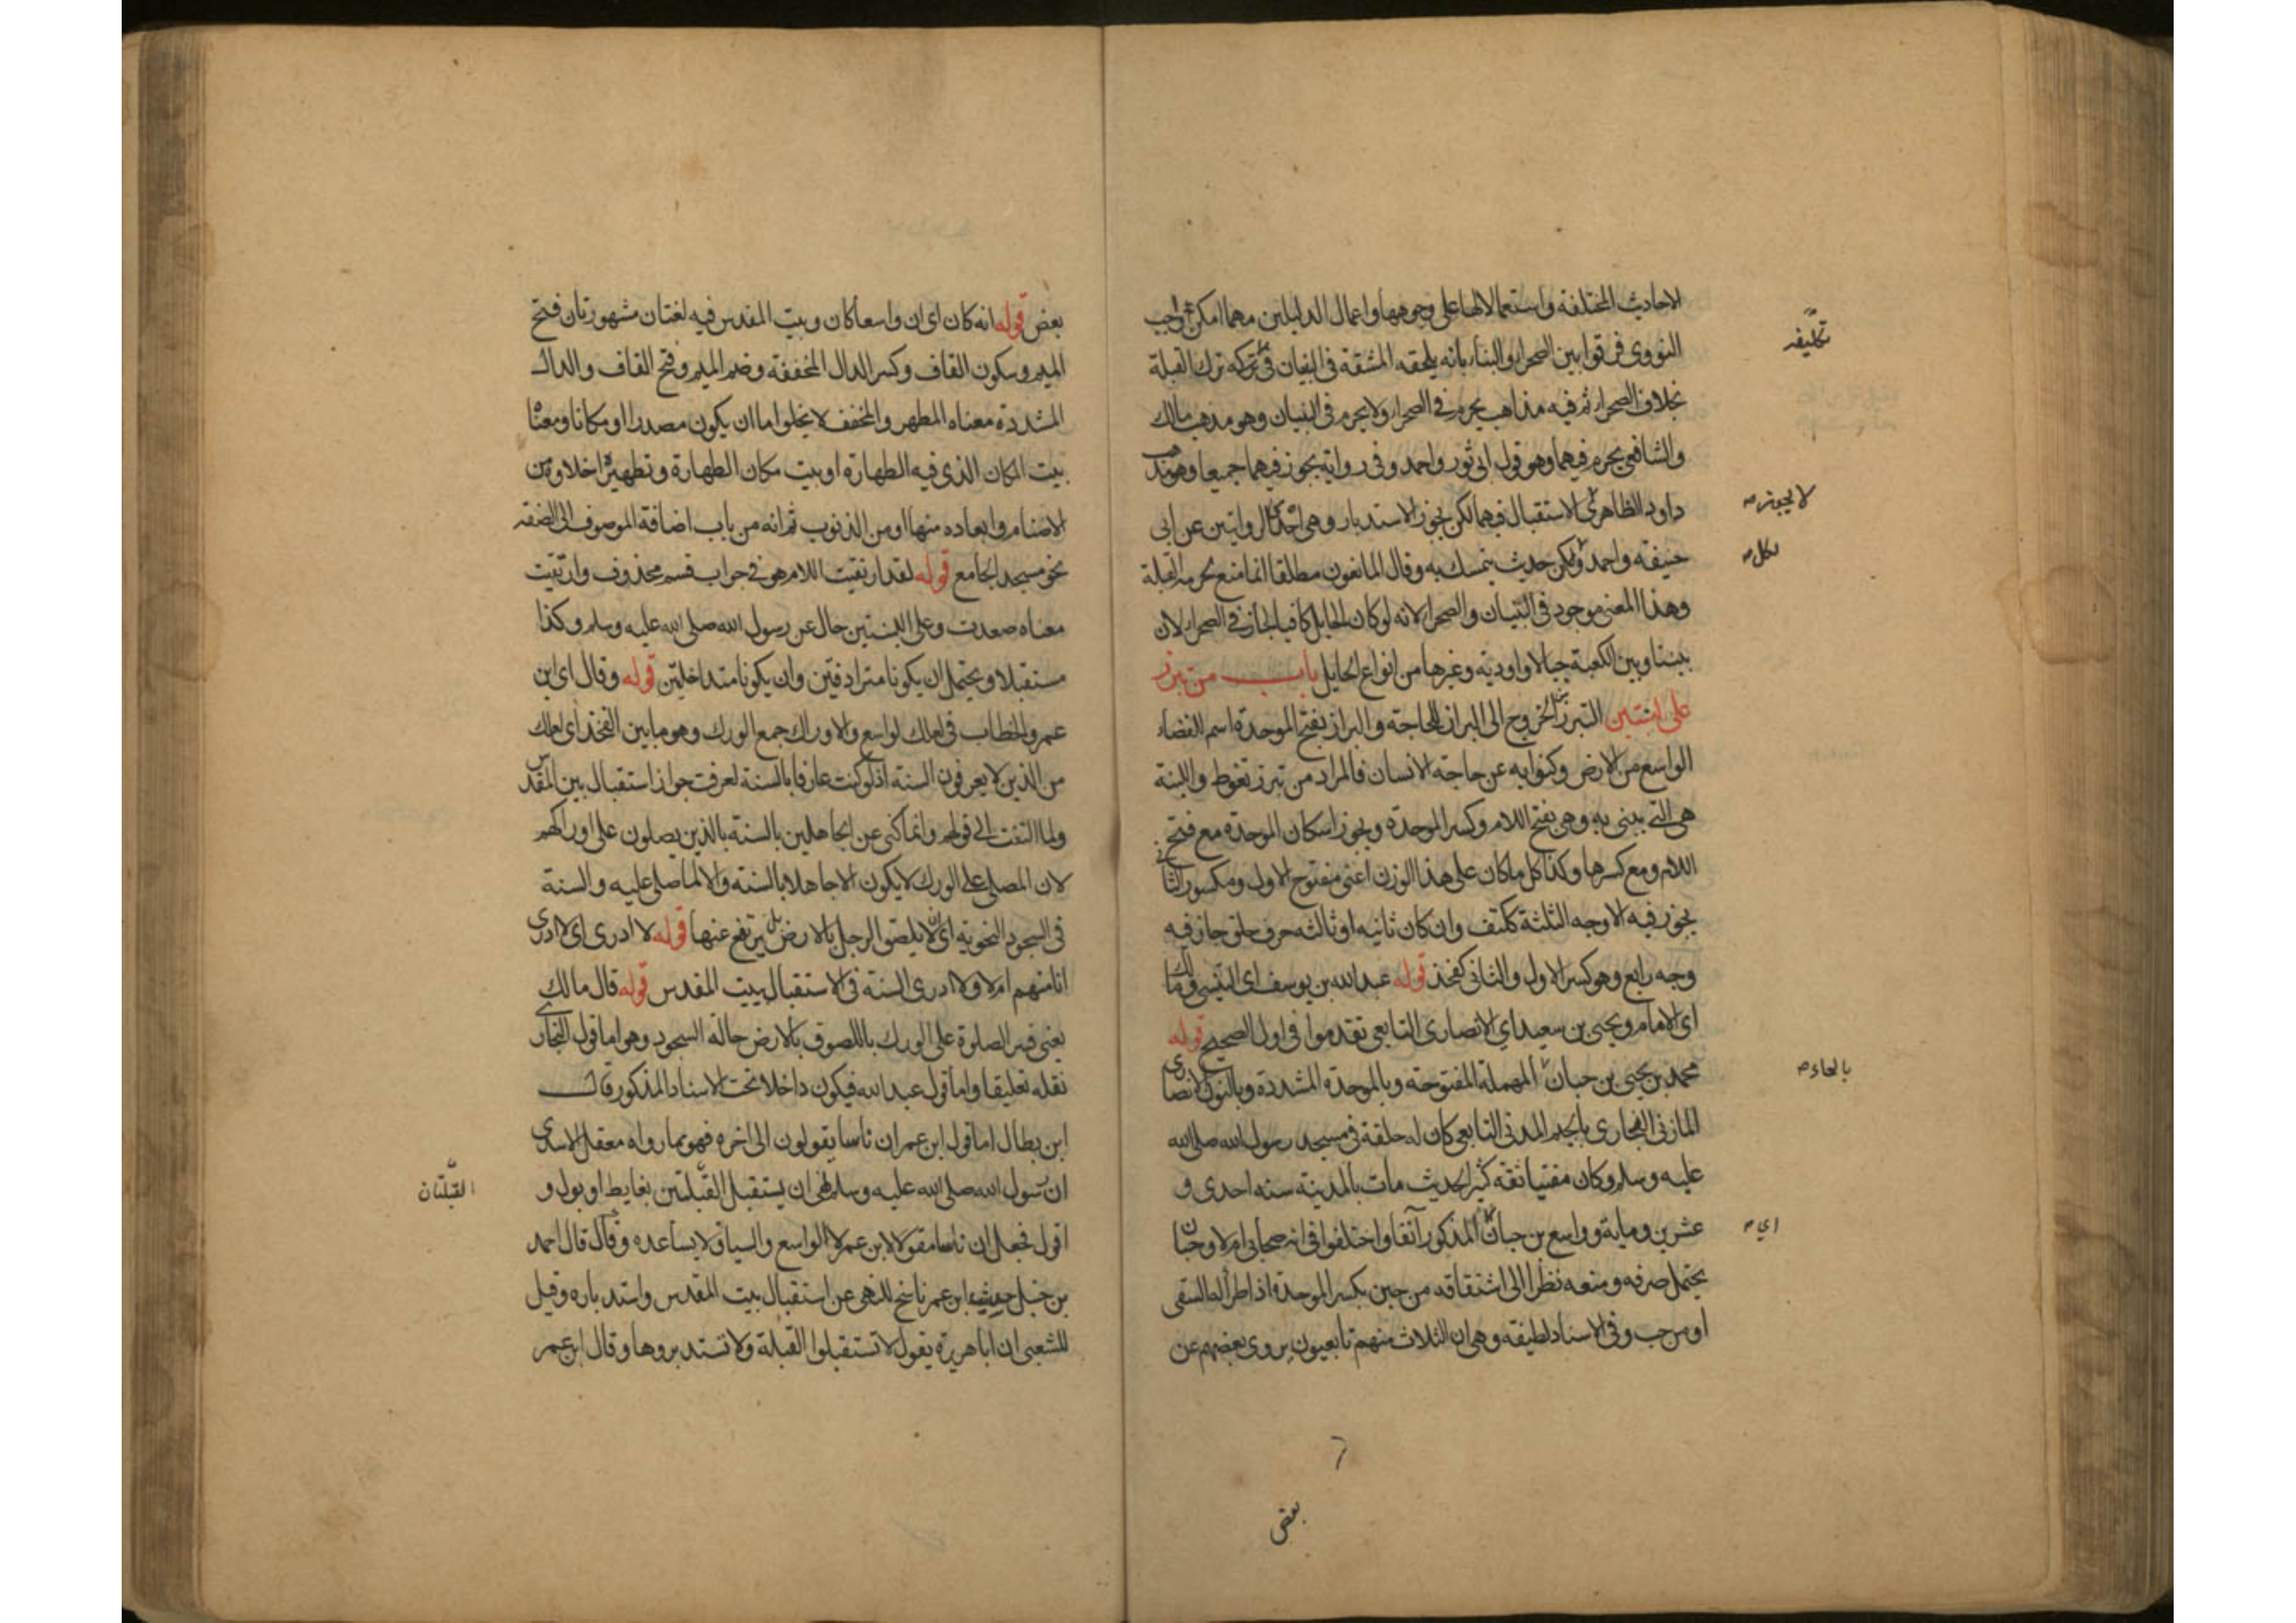 الاحاديث المختلفة واستعمالا لها على وجوهها واعمال الدليلين مهما امكن واجب
النووي فرقوا بين الصحراء والبناء بانه يلحقه المشقة في البنيان في تركه ترك القبلة
تكليفه
بخلاف الصحراء ثم فيه مذاهب يحرم في الصحراء ولا يحرم في البنيان وهو مذهب مالك
والشافعي يحرم فيهما وهو قول ابي ثور واحمد وفي رواية يجوز فيهما جميعا وهو مذهب
داود الظاهري الاستقبال فيهما لكن يجوز الاستدبار وهي احدى الروايتين عن ابي
لا يجوز صح
حنيفة واحمد ولكن حديث يتمسك به وقال المانعون مطلقا انما منع لحرمة القبلة
لكل صح
وهذا المعنى موجود في البنيان والصحراء لانه لو كان الحايل كافيا لجاز في الصحراء لان
بيننا وبين الكعبة جبالا واودية وغيرها من انواع الحايل باب من تبرز
على لبنتين التبرز الخروج الى البراز للحاجة والبراز بفتح الموحدة اسم للفضاء
الواسع من الارض وكنوا به عن حاجة الانسان فالمراد من تبرز تغوط واللبنة
هي التي يبنى به وهي بفتح اللام وكسر الموحدة ويجوز اسكان الموحدة مع فتح
اللام ومع كسرها وكذا كل ما كان على هذا الوزن اعني مفتوح الاول ومكسور الثاني
يجوز فيه الاوجه الثلثة ككتف وان كان ثانيه او ثالثه حرف حلق جاز فيه
وجه رابع وهو كسر الاول والثاني كفخذ قوله عبد الله بن يوسف اي التنيسي ومالك
اي الامام ويحيى بن سعيد اي الانصاري التابعي تقدموا في اول الصحيح قوله
محمد بن يحيى بن حبان المهملة المفتوحة وبالموحدة المشددة وبالنون الانصاري
بالحاء صح
المازني النجاري بالجيم المدني التابعي كان له حلقة في مسجد رسول الله صلى الله
عليه وسلم وكان مفتيا ثقة كثير الحديث مات بالمدينة سنة احدى و
عشرين وماية وواسع بن حبان المذكور آنفا واختلفوا في انه صحابي ام لا وحبان
اي صح
يحتمل صرفه ومنعه نظرا الى اشتقاقه من حبن بكسر الموحدة اذا طرأ له السقي
او من حب وفي الاسناد لطيفة وهي ان الثلاث منهم تابعيون يروي بعضهم عن
بعض
بعض قوله انه كان اي ان واسعا كان وبيت المقدس فيه لغتان مشهورتان فتح
الميم وسكون القاف وكسر الدال المخففة وضم الميم وفتح القاف والدال
المشددة معناه المطهر والمخفف لا يخلو اما ان يكون مصدرا او مكانا ومعناه
بيت المكان الذي فيه الطهارة او بيت مكان الطهارة وتطهيره اخلاوه من
الاصنام وابعاده منها او من الذنوب ثم انه من باب اضافة الموصوف الى الصفة
نحو مسجد الجامع قوله لقد ارتقيت اللام هو في جواب قسم محذوف وارتقيت
معناه صعدت وعلى اللبنتين حال عن رسول الله صلى الله عليه وسلم وكذا
مستقبلا ويحتمل ان يكونا مترادفين وان يكونا متداخلين قوله وقال اي ابن
عمر والخطاب في لعلك لواسع والاوراك جمع الورك وهو ما بين الفخذ اي لعلك
من الذين لا يعرفون السنة اذ لو كنت عارفا بالسنة لعرفت جواز استقبال بيت المقدس
ولما التفت الى قولهم وانما كنى عن الجاهلين بالسنة بالذين يصلون على اوراكهم
لان المصلي على الورك لا يكون الا جاهلا بالسنة والا لما صلى عليه والسنة
في السجود التخوية اي ان لا يلصق الرجل بالارض بل يرتفع عنها قوله لا ادري اي لا ادري
انا منهم ام لا ولا ادري السنة في الاستقبال ببيت المقدس قوله قال مالك
يعني فسر الصلوة على الورك باللصوق بالارض حالة السجود وهو اما قول البخاري
نقله تعليقا واما قول عبد الله فيكون داخلا تحت الاسناد المذكور قال
ابن بطال اما قول ابن عمر ان ناسا يقولون الى اخره فهو مما رواه معقل الاسدي
ان رسول الله صلى الله عليه وسلم نهى ان يستقبل القبلتين بغايط او بول و
القبلتان
اقول فجعل ان ناسا مقولا لابن عمر لا لواسع والسياق لا يساعده وقال قال احمد
بن حنبل حديث ابن عمر ناسخ للنهي عن استقبال بيت المقدس واستدباره وقيل
للشعبي ان ابا هريرة يقول لا تستقبلوا القبلة ولا تستدبروها وقال ابن عمر